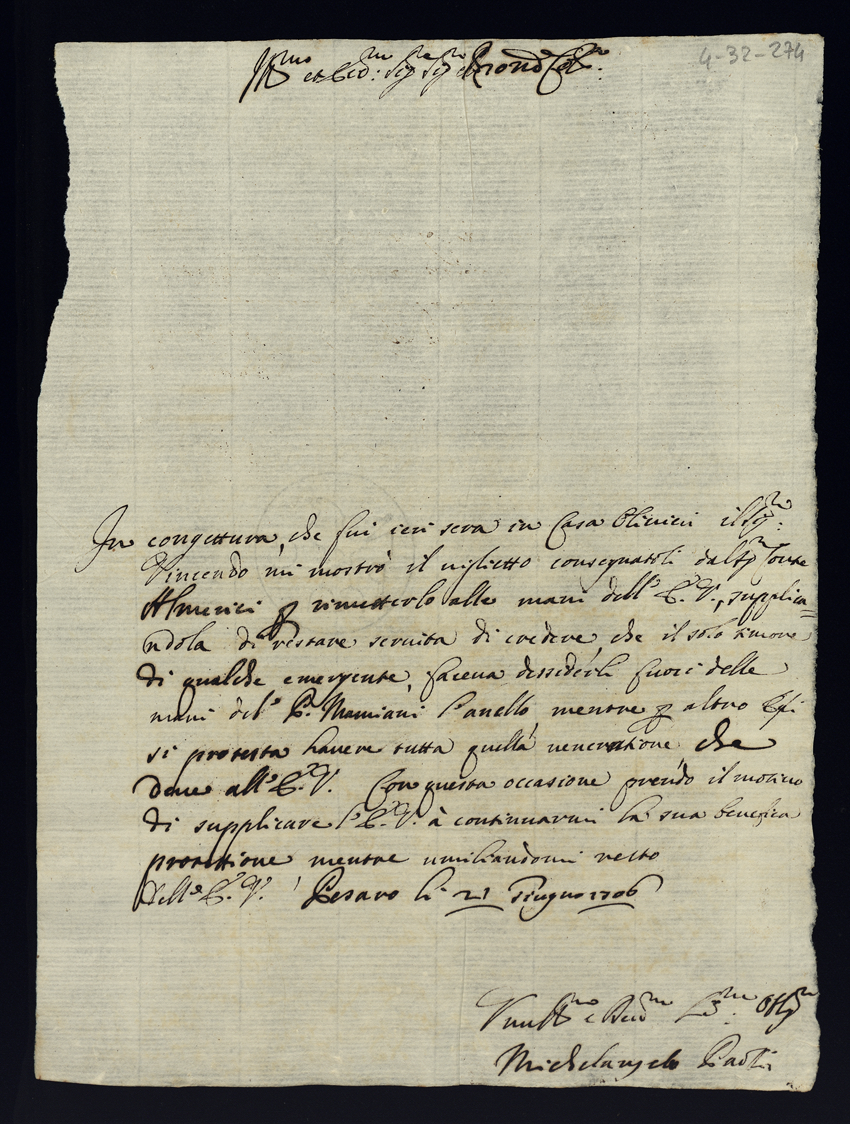 4-32-274
Ill.mo et Ecc.mo Sig.re Sig.r e Pron Col.mo
In congettura, che fui ieri sera in Casa Olivieri il Sig.r
Vincenzo mi mostrò il viglietto consegnatoli dal Sig.r Conte
Almerici p rimetterlo alle mani dell'E.V., supplica=
ndola di restare servita di credere, che il solo timore
di qualche emergente, faceva dessiderli fuori delle
mani del P. Mamiani l'anello, mentre p altro Egli
si protesta havere tutta quella veneratione che
deve all'E.V. Con questa occasione prendo il motivo
di supplicare l'E.V. à continuarmi la sua benefica
protettione mentre umiliandomi resto
Dell'E.V. Pesaro li 21 Giugno 1706
Vmil.mo e Dev.mo Ser.re Obl.mo
Michelangelo Paoli